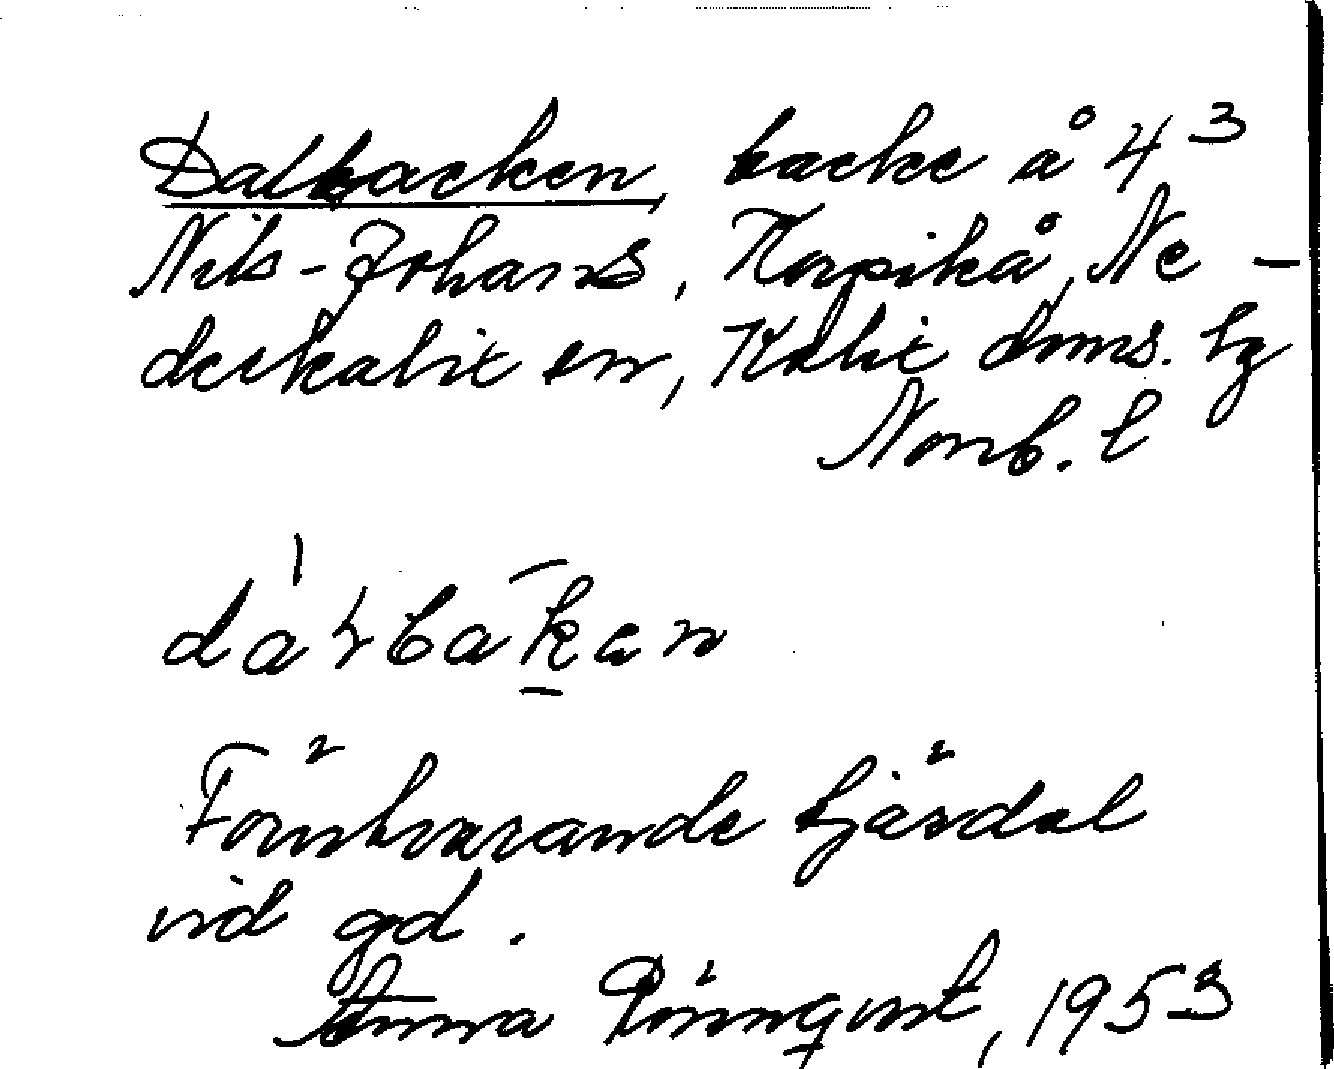 Dalbacken, backe å 4³
Nils-Johans, Korpikå, Ne-
derkalix sn, Kalix doms. hg
Norrb. l
dàlbakan
Förutvarande tjärdal
vid gd.
Anna Rönnqvist, 1953